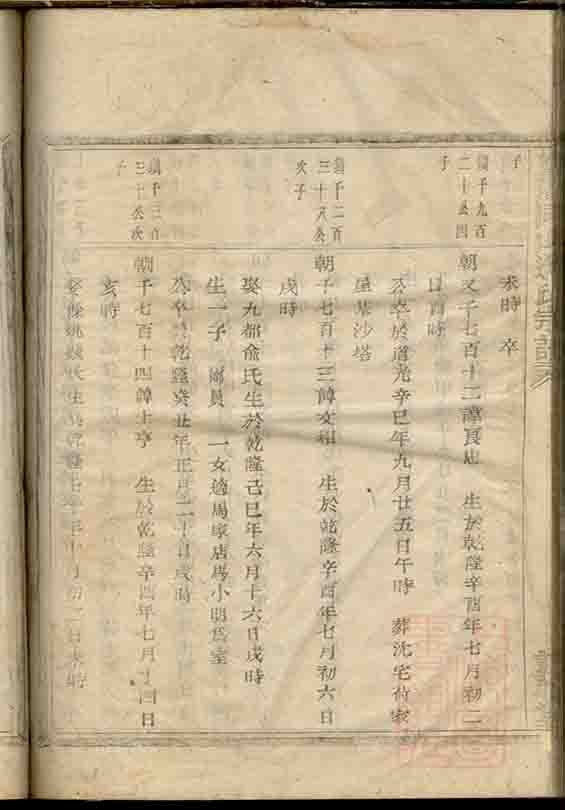 子
未時 卒
鎮千九百
二十公四
子
朝又千七百十二諱良忠 生於乾隆辛酉年七月初二
日酉時
公卒於道光辛巳年九月廿五日午時 葬沈宅荷家
屋基沙塔
鎮千二百
三十八公
次子
朝千七百十三諱文 生於乾隆辛酉年七月初六日
戌時
娶九都俞氏生於乾隆己巳年六月十六日戌時
生一子 一女適周家店馬小明為室
公卒於乾隆癸丑年正月二十日戌時
鎮千三百
三十公次
子
朝千七百十四諱士亨 生於乾隆辛酉年七月十四日
亥時
娶 姚 氏生於乾隆 年 月初 日未時